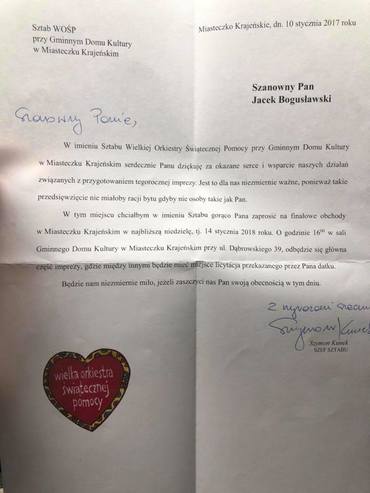 Sztab WOŚP
przy Gminnym Domu Kultury
w Miasteczku Krajeńskim
Miasteczko Krajeńskie, dn. 10 stycznia 2017 roku
Szanowny Pan
Jacek Bogusławski
Szanowny Panie,
W imieniu Sztabu Wielkiej Orkiestry Świątecznej Pomocy przy Gminnym Domu Kultury
w Miasteczku Krajeńskim serdecznie Panu dziękuję za okazane serce i wsparcie naszych działań
związanych z przygotowaniem tegorocznej imprezy. Jest to dla nas niezmiernie ważne, ponieważ takie
przedsięwzięcie nie miałoby racji bytu gdyby nie osoby takie jak Pan.
W tym miejscu chciałbym w imieniu Sztabu gorąco Pana zaprosić na finałowe obchody
w Miasteczku Krajeńskim w najbliższą niedzielę, tj. 14 stycznia 2018 roku. O godzinie 16⁰⁰ w sali
Gminnego Domu Kultury w Miasteczku Krajeńskim przy ul. Dąbrowskiego 39, odbędzie się główna
część imprezy, gdzie między innymi będzie mieć miejsce licytacja przekazanego przez Pana datku.
Będzie nam niezmiernie miło, jeżeli zaszczyci nas Pan swoją obecnością w tym dniu.
Z wyrazami
Szymon Kunek
Szymon Kunek
SZEF SZTABU
wielka orkiestra
świątecznej
pomocy